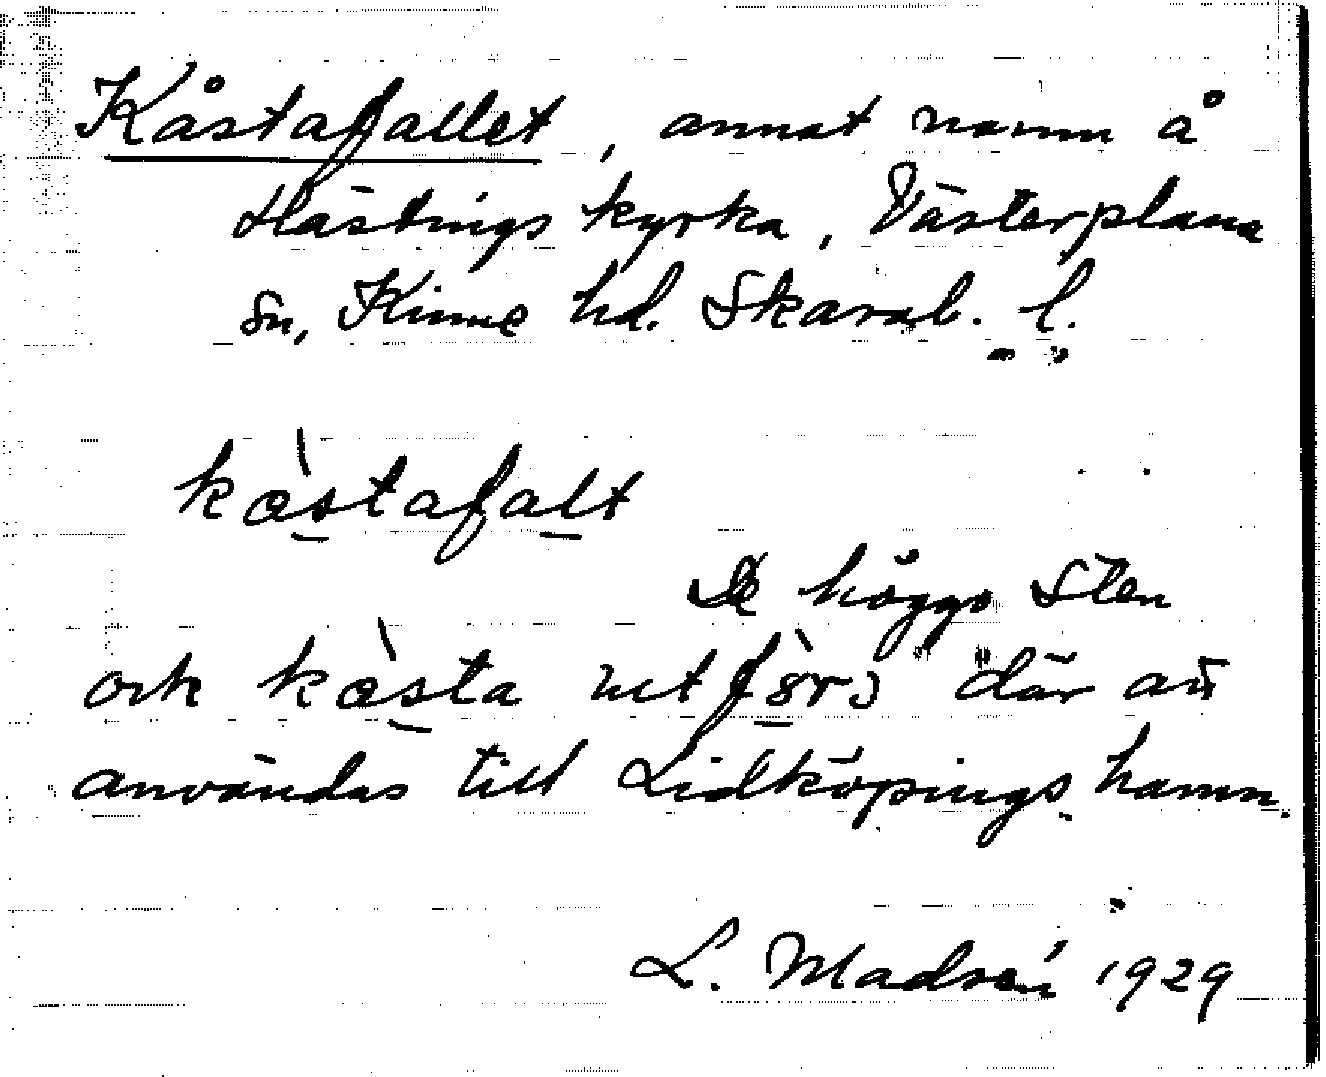 Kåstafallet, annat namn å
Hästings kyrka, Västerplana
sn, Kinne hd. Skarab. l.
kæ̀stafalt
De höggo sten
och kæ̀sta utförs där att
användas till Lidköpings hamn.
L. Madsén 1929